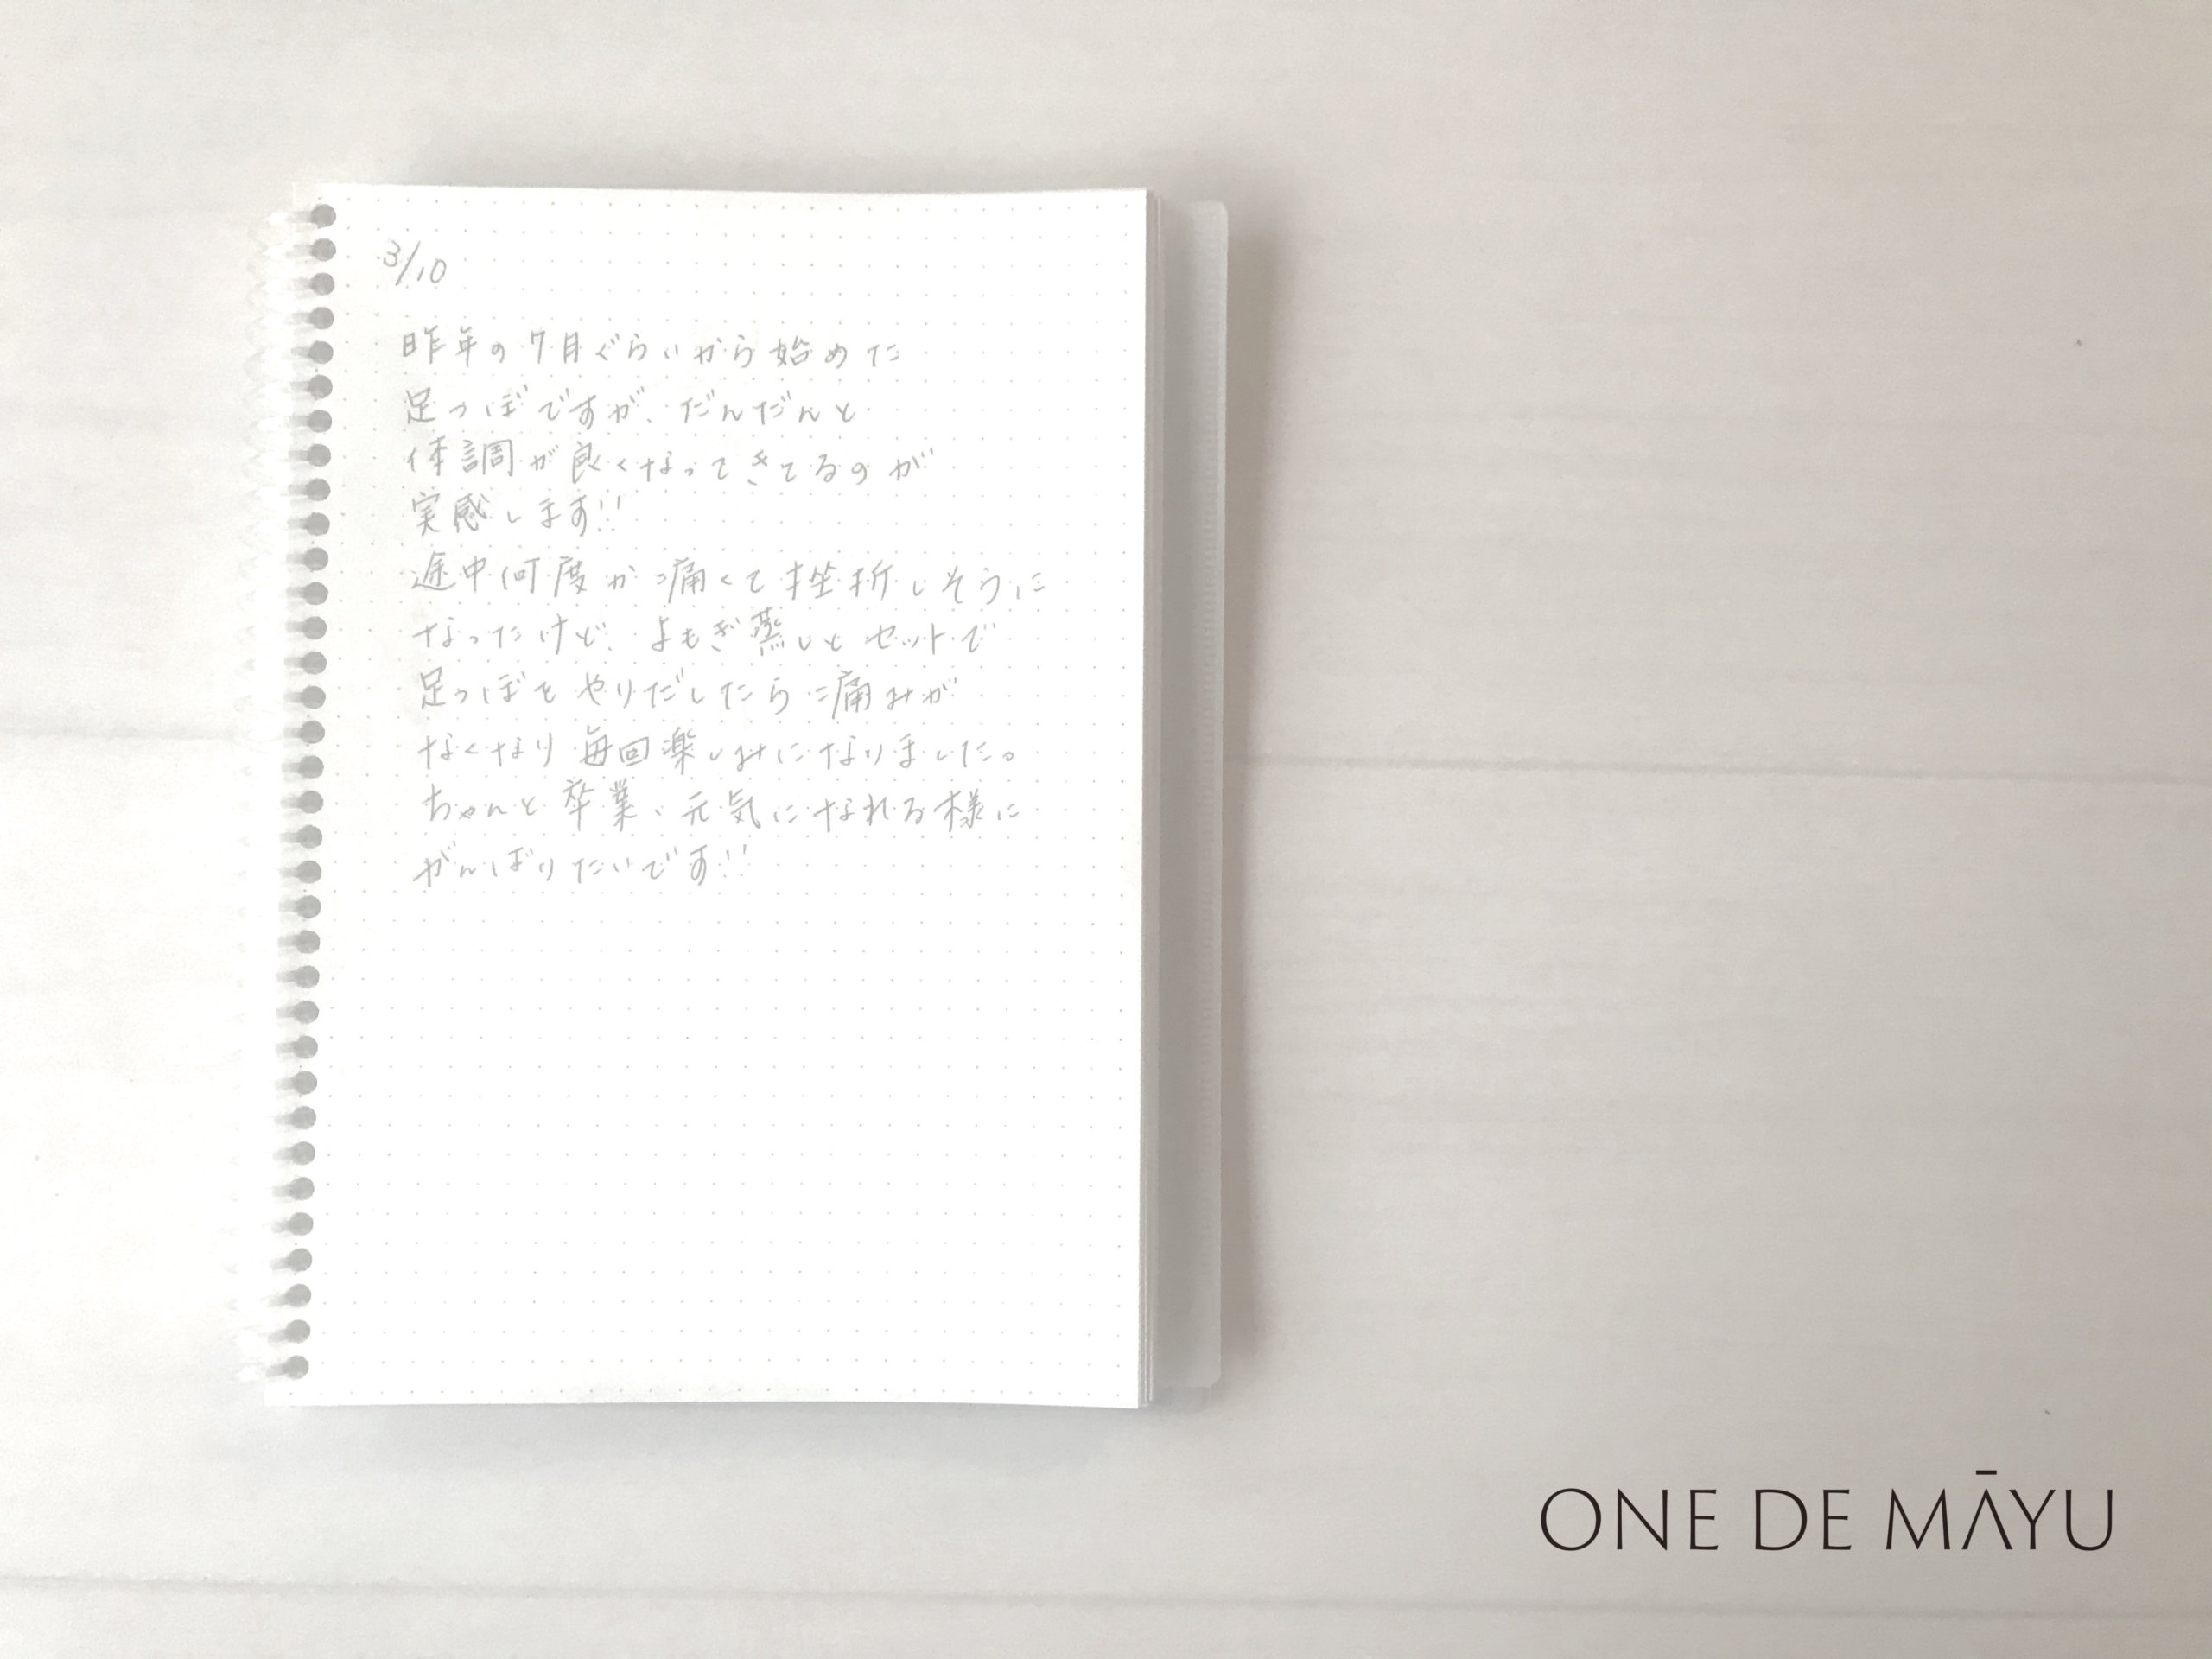 3/10
昨年の7月ぐらいから始めた
足つぼですが、だんだんと
体調が良くなってきてるのが
実感します!!
途中何度か痛くて挫折しそうに
なったけど、よもぎ蒸しとセットで
足つぼをやりだしたら痛みが
なくなり毎回楽しみになりました。
ちゃんと卒業、元気になれる様に
がんばりたいです!!
ONE DE MĀYU